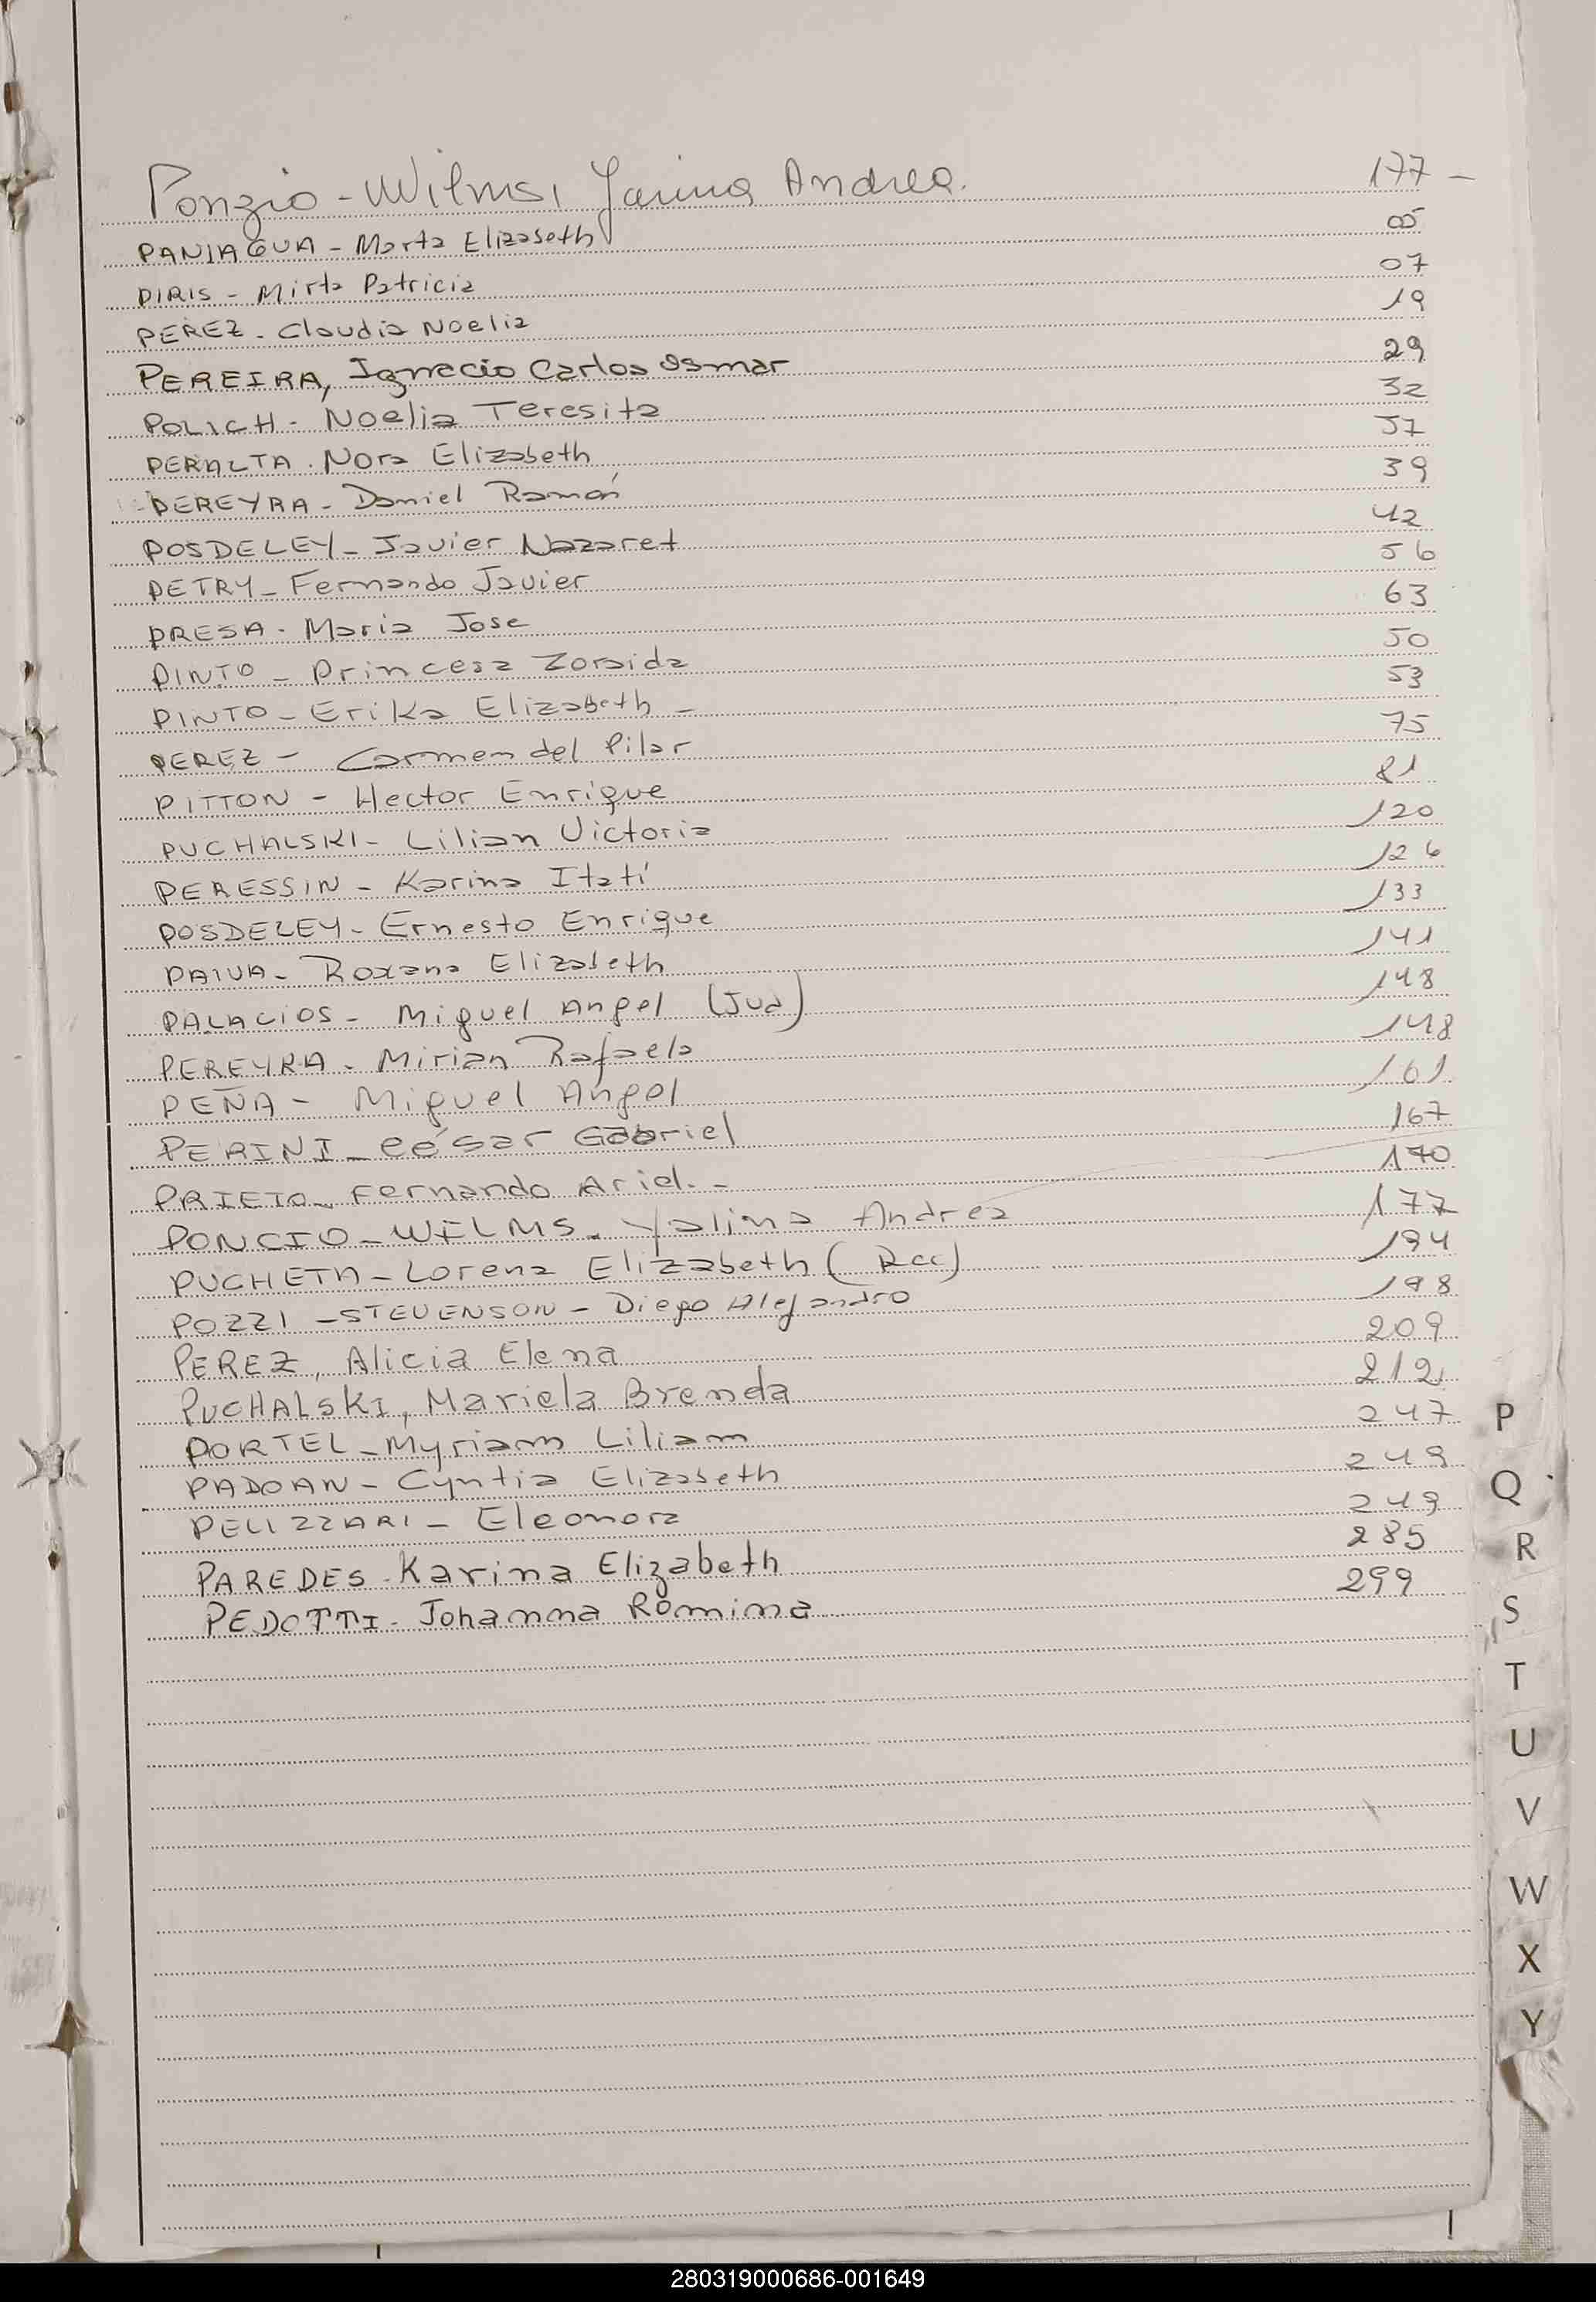 Ponzio - Wilms, Yanina Andrea. 177 -
PANIAGUA - Marta Elizabeth 05
PIRIS - Mirta Patricia 07
PEREZ - Claudia Noelia 19
PEREIRA, Ignacio Carlos Osmar 29
POLICH - Noelia Teresita 32
PERALTA. Nora Elizabeth 37
PEREYRA - Daniel Ramón 39
POSDELEY - Javier Nazaret 42
PETRY - Fernando Javier 56
PRESA - Maria Jose 63
PINTO - Princesa Zoraida 50
PINTO - Erika Elizabeth - 53
PEREZ - Carmen del Pilar 75
PITTON - Hector Enrique 81
PUCHALSKI - Lilian Victoria 120
PERESSIN - Karina Itatí 126
POSDELEY - Ernesto Enrique 133
PAIVA - Roxana Elizabeth 141
PALACIOS - Miguel Angel (Jud) 148
PEREYRA - Mirian Rafaela 148
PEÑA - Miguel Angel 161
PERINI - César Gabriel 167
PRIETO - Fernando Ariel. - 170
PONCIO - WELMS. Yalina Andrea 177
PUCHETA - Lorena Elizabeth (Rcc) 194
POZZI - STEVENSON - Diego Alejandro 198
PEREZ, Alicia Elena 209
PUCHALSKI, Mariela Brenda 212
PORTEL - Myriam Liliam 247
PADOAN - Cyntia Elizabeth 249
PELIZZARI - Eleonora 249
PAREDES - Karina Elizabeth 285
PEDOTTI - Johanna Romina 299
P
Q
R
S
T
U
V
W
X
Y
280319000686-001649